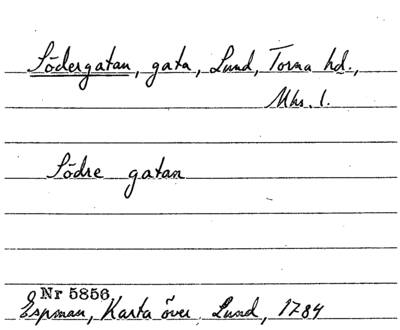 Södergatan, gata, Lund, Torna hd.,
Mhs. l.
Södre gatan
Nr 5856
Espman, Karta över Lund, 1784